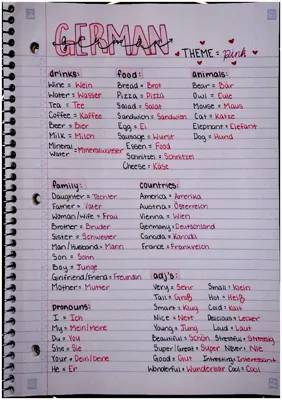 GERMAN
THEME = pink
drinks:
Wine = Wein
Water = Wasser
Tea = Tee
Coffee = Kaffee
Beer = Bier
Milk = Milch
Mineral Water = Mineralwasser
food:
Bread = Brot
Pizza = Pizza
Salad = Salat
Sandwich = Sandwich
Egg = Ei
Sausage = Wurst
Essen = Food
Schnitzel = Schnitzel
Cheese = Käse
animals:
Bear = Bär
Owl = Eule
Mouse = Maus
Cat = Katze
Elephant = Elefant
Dog = Hund
family:
Daughter = Tochter
Father = Vater
Woman/Wife = Frau
Brother = Bruder
Sister = Schwester
Man/Husband = Mann
Son = Sohn
Boy = Junge
Girlfriend/Friend = Freundin
Mother = Mutter
countries:
America = Amerika
Austria = Österreich
Vienna = Wien
Germany = Deutschland
Canada = Kanada
France = Frankreich
pronouns:
I = Ich
My = Mein/Meine
Du = You
She = Sie
Your = Dein/Deine
He = Er
adj's:
Very = Sehr
Tall = Groß
Smart = Klug
Nice = Nett
Young = Jung
Beautiful = Schön
Super/Great = Super
Good = Gut
Wonderful = Wunderbar
Small = Klein
Hot = Heiß
Cold = Kalt
Delicious = Lecker
Loud = Laut
Stressful = Stressig
Never = Nie
Interesting = Interessant
Cool = Cool